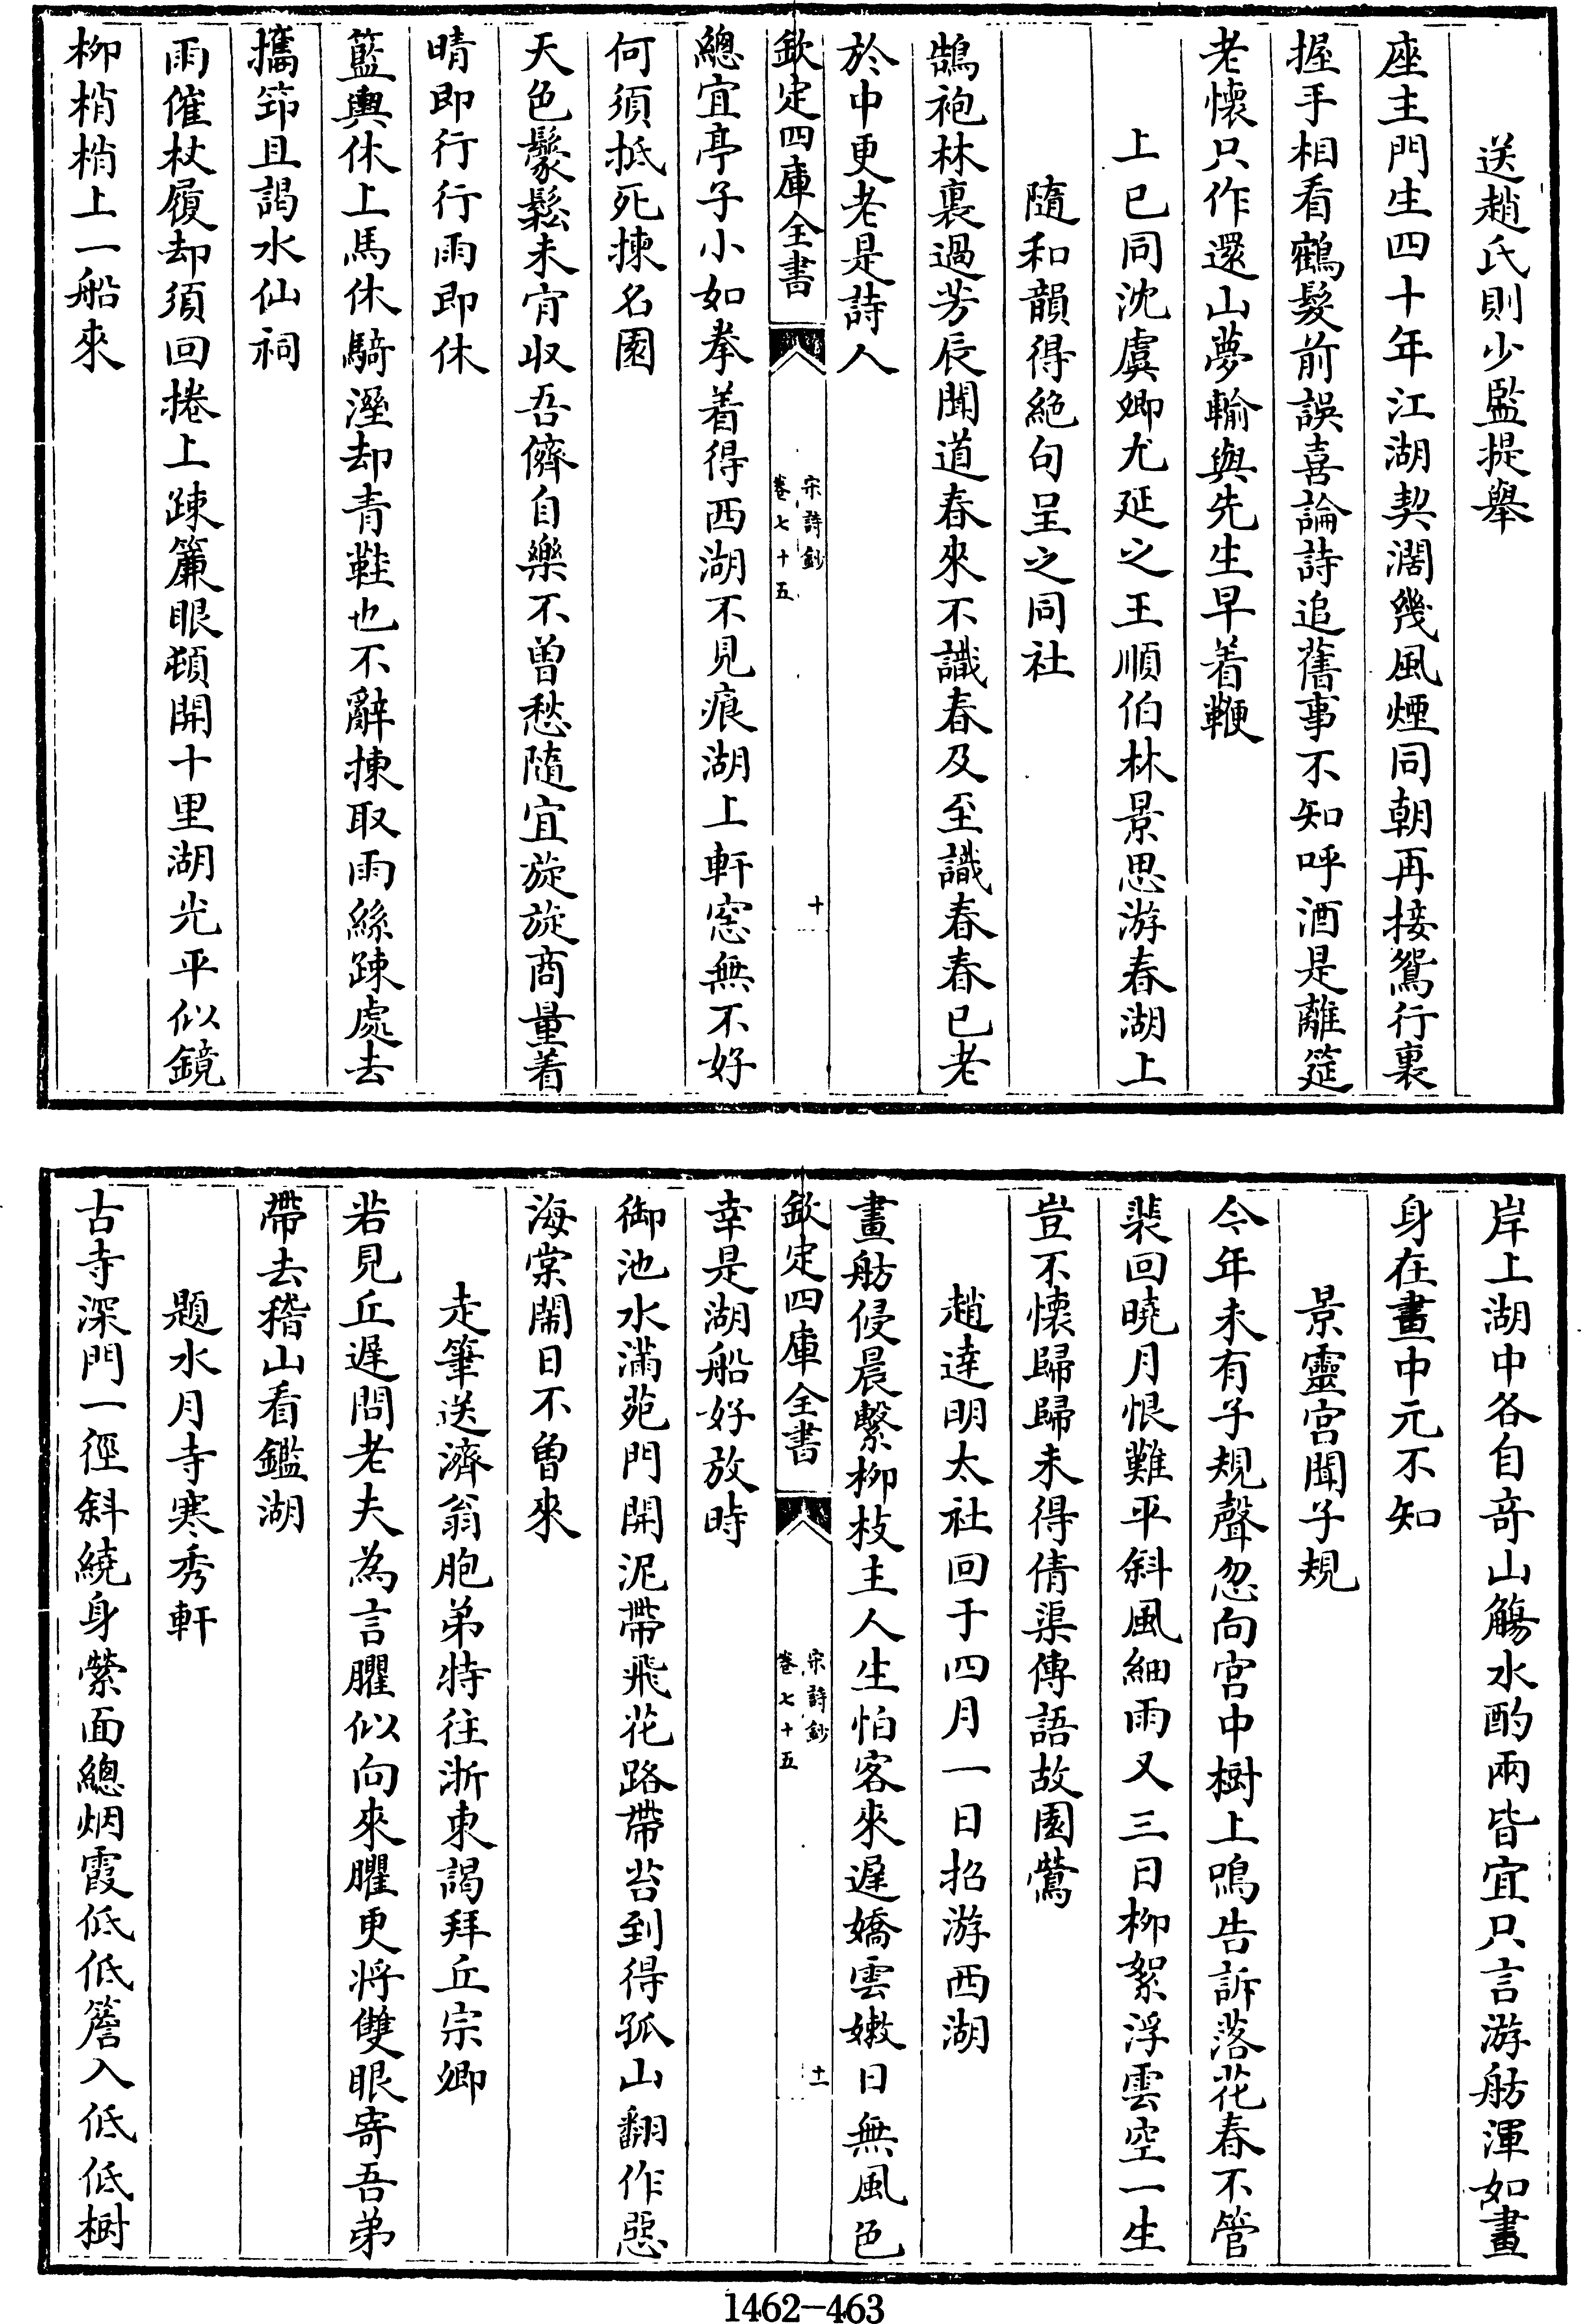 送趙民則少監提舉
座主門生四十年江湖契濶幾風煙同朝再接鴛行裏
握手相看鶴髮前誤喜論詩追舊事不知呼酒是離筵
老懷只作還山夢輸與先生早着鞭
上巳同沈虞卿尤延之王順伯林景思游春湖上
隨和韻得絶句呈之同社
鵠袍林裏過芳辰聞道春來不識春及至識春春已老
於中更老是詩人
欽定四庫全書
宋詩鈔
卷七十五
十
總宜亭子小如拳着得西湖不見痕湖上軒窓無不好
何須抵死揀名園
天色鬖鬆未肯収吾儕自樂不曾愁隨宜旋旋商量着
晴即行行雨即休
籃輿休上馬休騎溼却青鞋也不辭揀取雨絲踈處去
攜筇且謁水仙祠
雨催杖屨却須回捲上踈簾眼頓開十里湖光平似鏡
柳梢梢上一船來
岸上湖中各自竒山觴水酌兩皆宜只言游舫渾如畫
身在畫中元不知
景靈宫聞子規
今年未有子規聲忽向宫中樹上鳴告訴落花春不管
裴回曉月恨難平斜風細雨又三日柳絮浮雲空一生
豈不懷歸歸未得倩渠傳語故園鶯
趙達明太社回于四月一日招游西湖
畫舫侵晨繫柳枝主人生怕客來遲嬌雲嫩日無風色
幸是湖船好放時
欽定四庫全書
宋詩鈔
卷七十五
十一
御池水滿苑門開泥帶飛花路帶苔到得孤山翻作惡
海棠閙日不曾來
走筆送濟翁胞弟特往浙東謁拜丘宗卿
若見丘遲問老夫為言臞似向來臞更將雙眼寄吾弟
帶去稽山看鑑湖
題水月寺寒秀軒
古寺深門一徑斜繞身縈面總烟霞低低簷入低低樹
1462—463